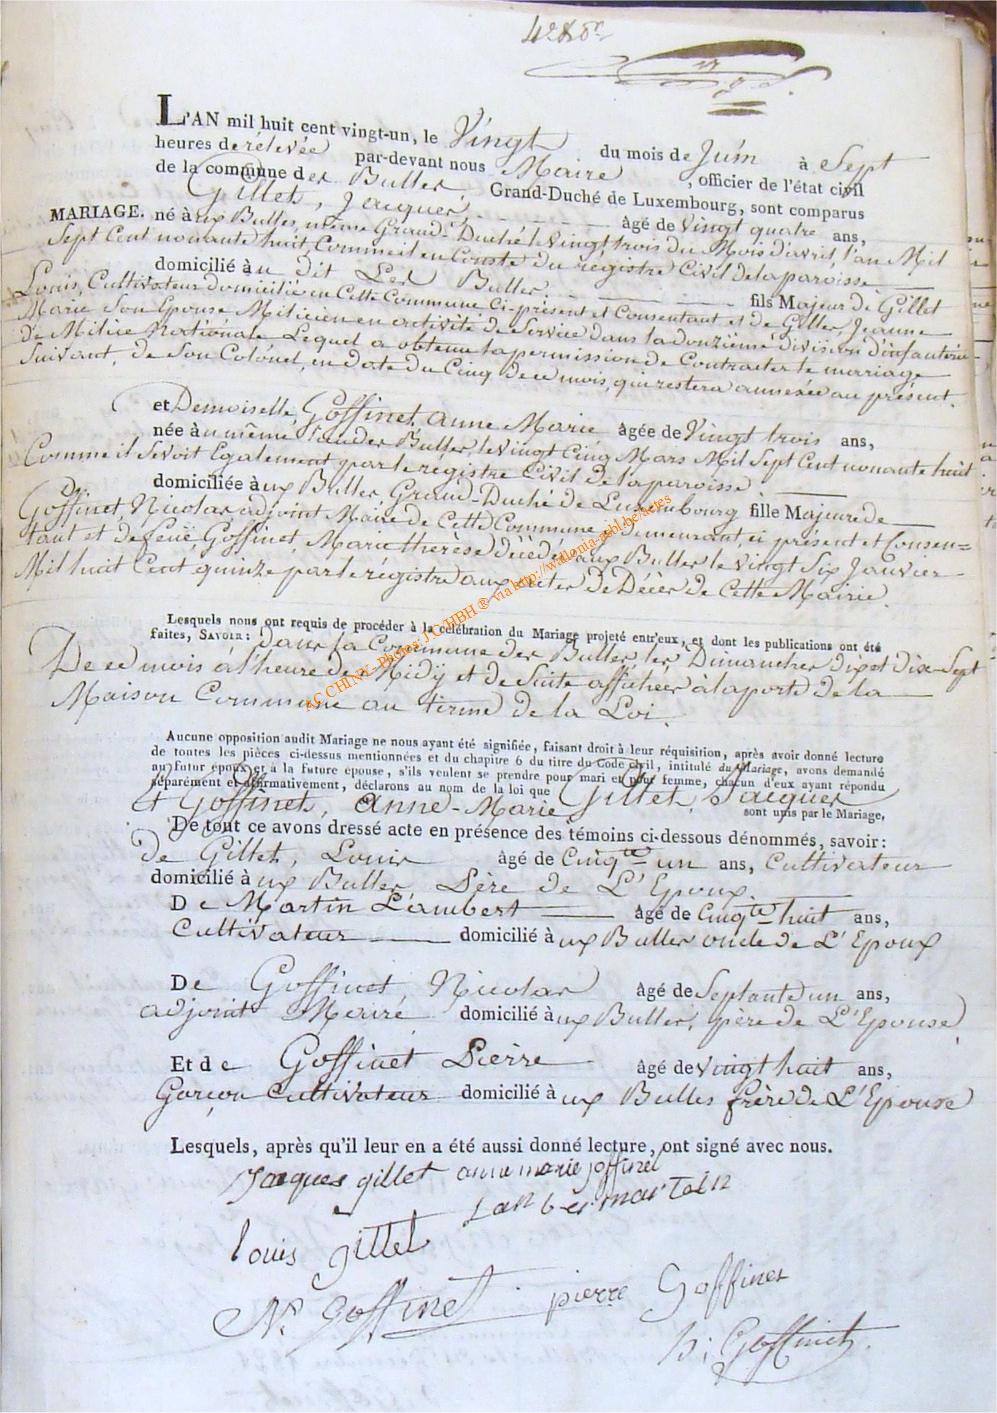 L'AN mil huit cent vingt-un, le Vingt du mois de Juin à Sept
heures de rélevée par-devant nous Maire, officier de l'état civil
de la commune des Bulles Grand-Duché de Luxembourg, sont comparus
Gillet, Jacques, âgé de Vingt quatre ans,
MARIAGE. né à ux Bulles, même Grand-Duché le Vingt trois du Mois d'avril, l'an Mil
Sept Cent nonante huit Comme il en Conste du régistre Civil de la paroisse
domicilié à u dit Les Bulles. fils Majeur de Gillet
Louis, Cultivateur domicilié en Cette Commune Ci-présent et Consentant et de Gillet Jeanne
Marie Son Epouse Milicien en activité de Service dans la douzième division d'infanterie
de Milice Nationale Lequel a obtenu la permission de Contracter le mariage
Suivant, de Son Colonel, en date du Cinq de ce mois, qui restera annexée au présent.
et Demoiselle, Goffinet, anne Marie âgée de Vingt trois ans,
née à u même lieu des Bulles, le vingt Cinq Mars Mil Sept Cent nonante huit
Comme il Se voit Egalement par le régistre Civil de la paroisse
domiciliée à ux Bulles, Grand-Duché de Luxembourg fille Majeure de
Goffinet, Nicolas adjoint Maire de Cette Commune, y demeurant ci présent et Consen=
tant et de feue Goffinet, Marie thérèse décédée aux Bulles le vingt Six Janvier
Mil huit Cent quinze par le régistre aux actes de Décès de Cette Mairie.
Lesquels nous ont requis de procéder à la célébration du Mariage projeté entr'eux, et dont les publications ont été
faites, SAVOIR: dans la Commune des Bulles, les Dimanches dix et dix-Sept
De ce mois à l'heure de Midÿ et de Suite affichées à la porte de la
Maison Commune au terme de la Loi.
Aucune opposition audit Mariage ne nous ayant été signifiée, faisant droit à leur réquisition, après avoir donné lecture
de toutes les pièces ci-dessus mentionnées et du chapitre 6 du titre du Code civil, intitulé du Mariage, avons demandé
au futur époux et à la future épouse, s'ils veulent se prendre pour mari et pour femme, chacun d'eux ayant répondu
séparément et affirmativement, déclarons au nom de la loi que Gillet, Jacques
et Goffinet, Anne-Marie sont unis par le Mariage,
De tout ce avons dressé acte en présence des témoins ci-dessous dénommés, savoir:
De Gillet, Louis âgé de Cinqte un ans, Cultivateur
domicilié à ux Bulles, Père de L'Epoux
De Martin Lambert âgé de Cinqte huit ans,
Cultivateur domicilié à ux Bulles oncle de L'Epoux
De Goffinet Nicolas âgé de Septante un ans,
adjoint Maire domicilié à ux Bulles, père de L'Epouse,
Et de Goffinet Pierre âgé de vingt huit ans,
Garçon Cultivateur domicilié à ux Bulles frère de L'Epouse
Lesquels, après qu'il leur en a été aussi donné lecture, ont signé avec nous.
Jacques gillet anne marie joffinet
Lambert martain
louis gillet
Ns. Goffinet pierre Goffinet
h; Goffinet.
AC CHINY - Photos J C/HBH ® via http://wallonia-asbl.be/actes